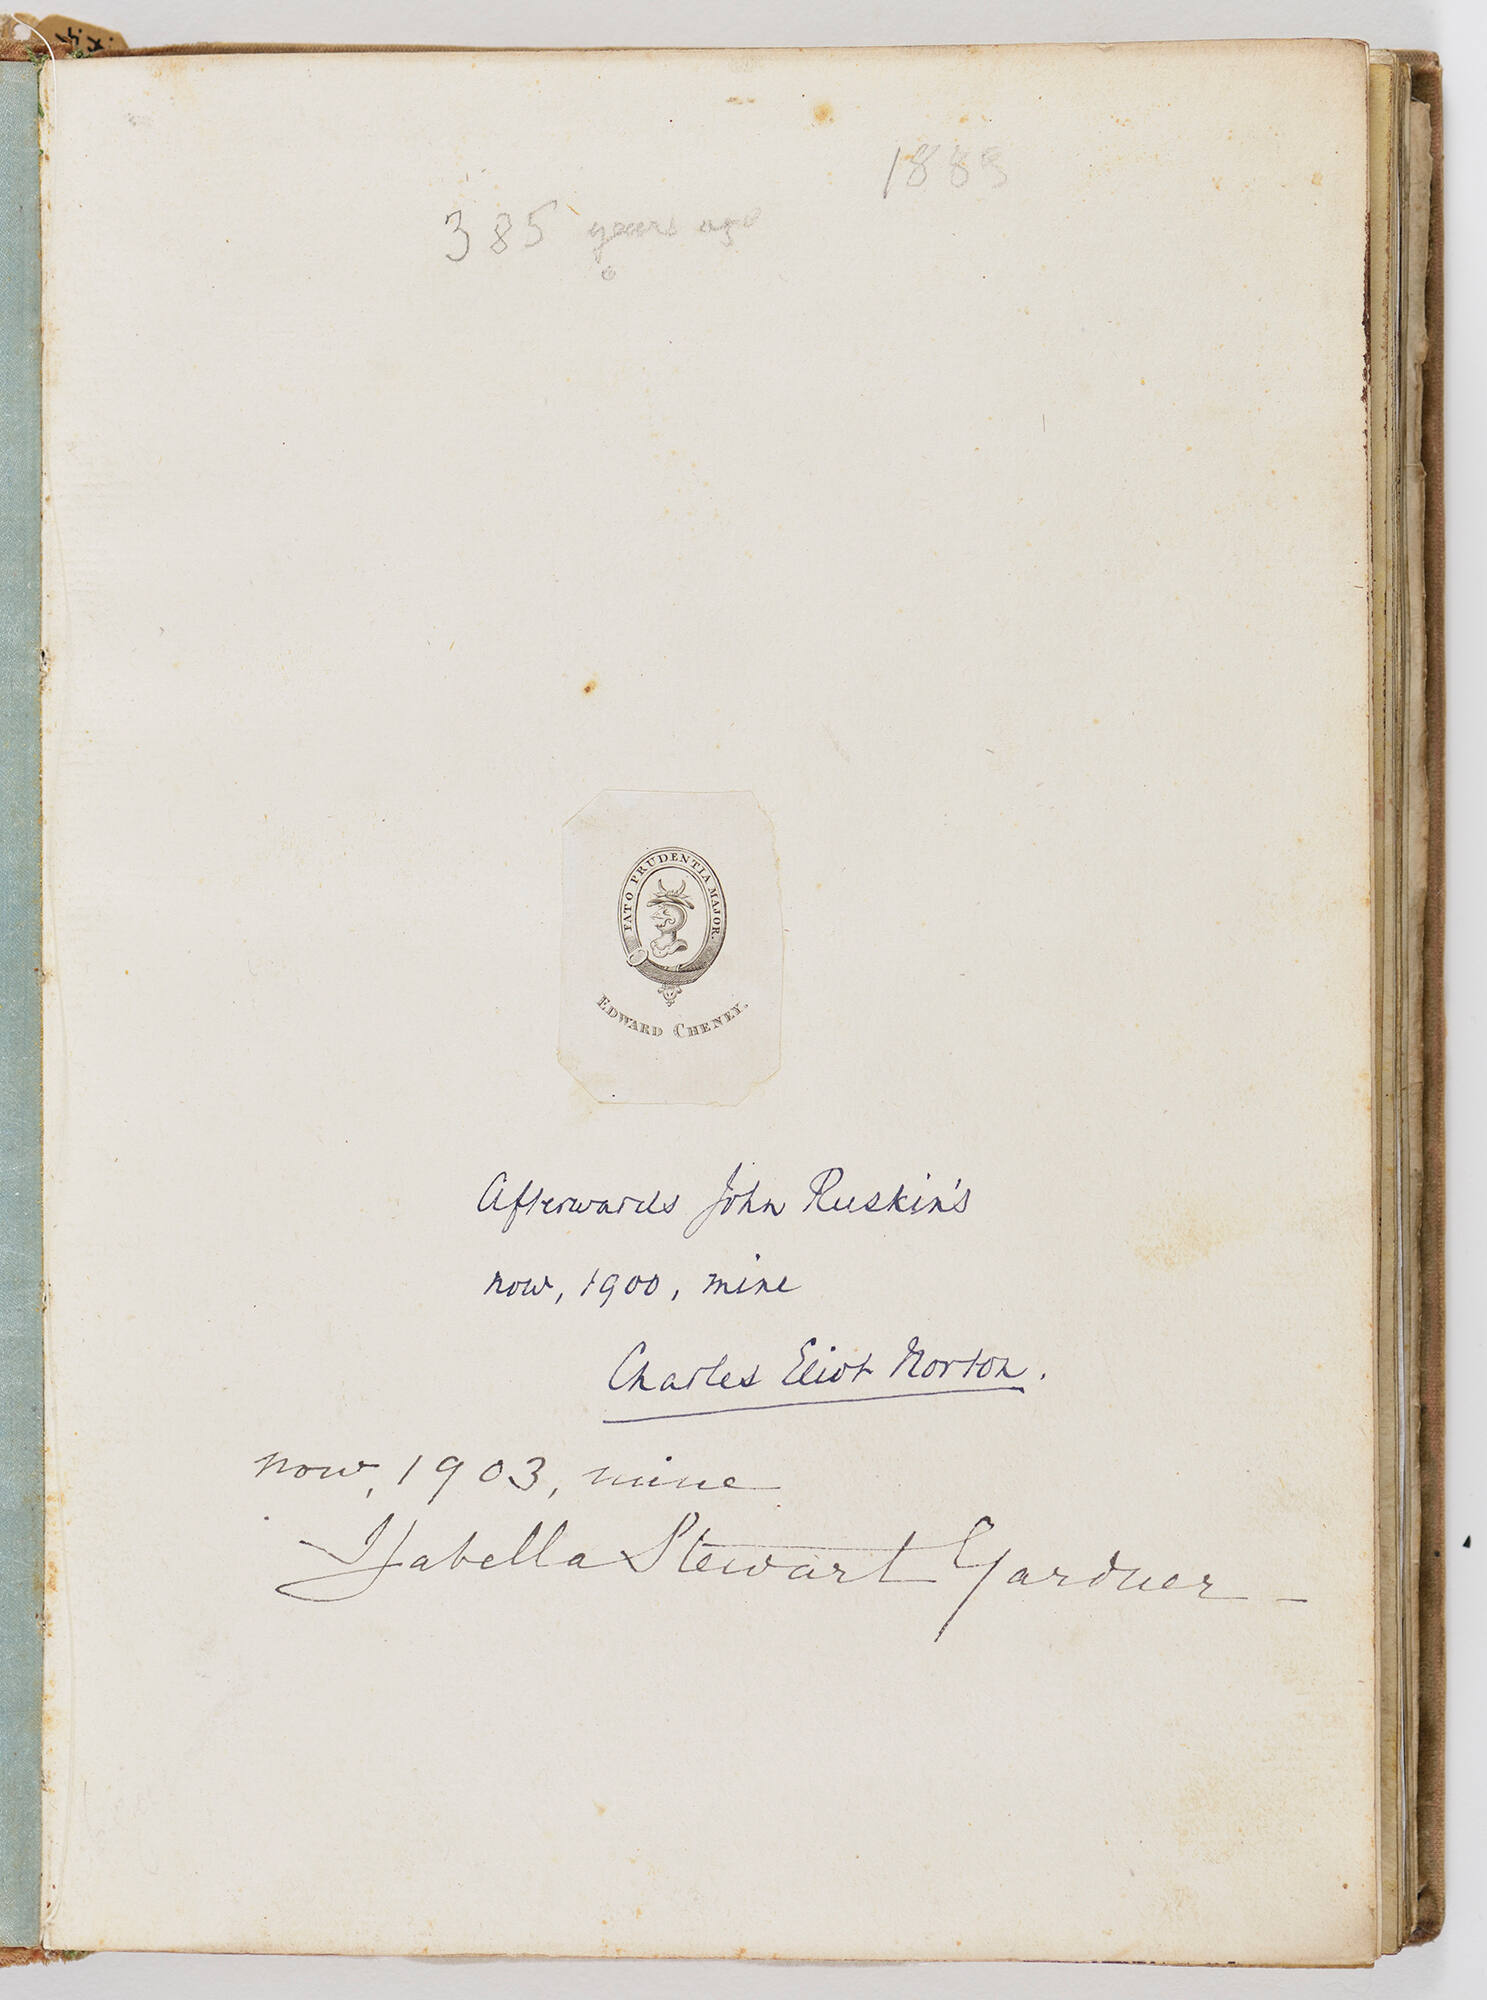 385 years ago
FATO PRUDENTIA MAJOR.
EDWARD CHENEY.
Afterwards John Ruskin's
now, 1900, mine
Charles Eliot Norton.
now, 1903, mine
Isabella Stewart Gardner –